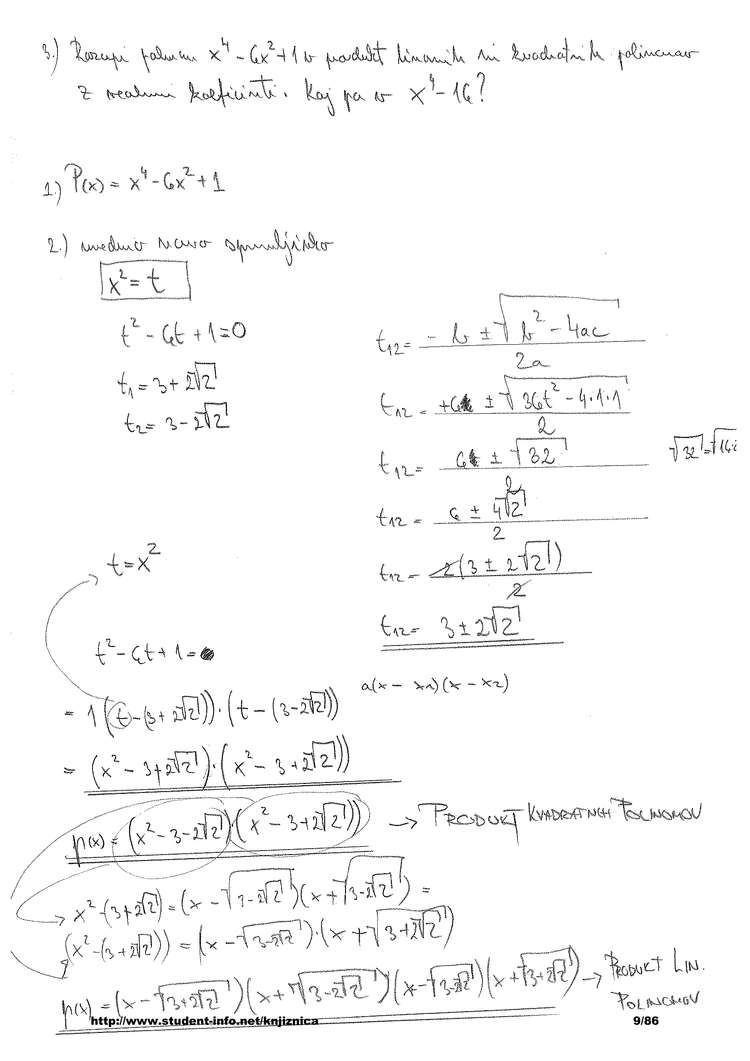 3.) Razcepi polinom x⁴ - 6x² + 1 v produkt linearnih in kvadratnih polinomov
z realnimi koeficienti. Kaj pa v x⁴ - 16?
1.) P(x) = x⁴ - 6x² + 1
2.) uvedmo novo spremenljivko
x² = t
t² - 6t + 1 = 0
t₁ = 3 + 2√2
t₂ = 3 - 2√2
t₁₂ = (-b ± √(b² - 4ac)) / 2a
t₁₂ = (+6 ± √(36t² - 4·1·1)) / 2
t₁₂ = (6 ± √32) / 2
√32 = √16·2
t₁₂ = (6 ± 4√2) / 2
t₁₂ = 2(3 ± 2√2) / 2
t₁₂ = 3 ± 2√2
t = x²
t² - 6t + 1 =
= 1(t - (3 + 2√2))·(t - (3 - 2√2))
a(x - x₁)(x - x₂)
= (x² - 3 + 2√2)·(x² - 3 + 2√2))
p(x) = (x² - 3 - 2√2)(x² - 3 + 2√2)) → PRODUKT KVADRATNIH POLINOMOV
→ x² - (3 + 2√2) = (x - √(3 - 2√2))(x + √(3 - 2√2)) =
(x² - (3 + 2√2)) = (x - √(3 - 2√2))·(x + √(3 + 2√2))
p(x) = (x - √(3 + 2√2))(x + √(3 - 2√2))(x - √(3 - 2√2))(x + √(3 + 2√2)) → PRODUKT LIN.
POLINOMOV
http://www.student-info.net/knjiznica
9/86